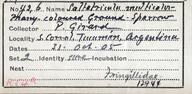 No. 42,6. Name Saltatricula multicolor
Many-coloured Ground-Sparrow
Collector P. Girard
Locality S. Corral, Tucuman, Argentina
Date 21. Oct. 05
Set 2 Identity Incubation
Fringillidae
12944